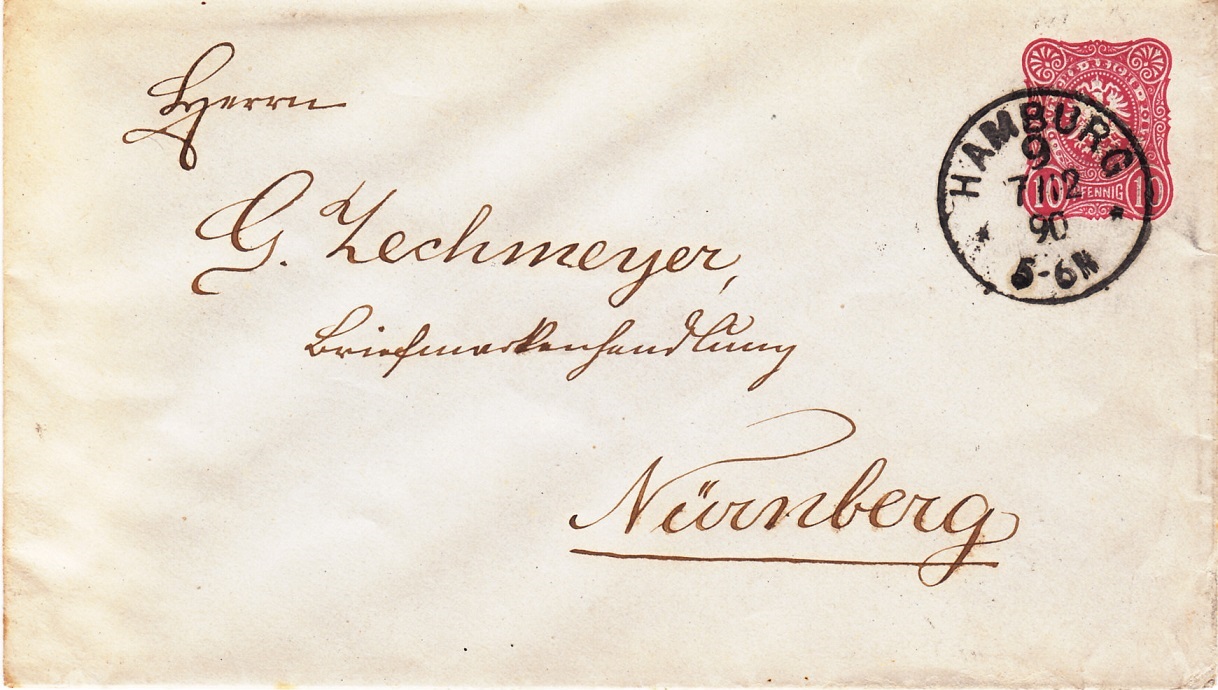 Herrn
G. Zechmeyer,
Briefmarkenhandlung
Nürnberg
HAMBURG
9
90
5-6N
10 PFENNIG 10